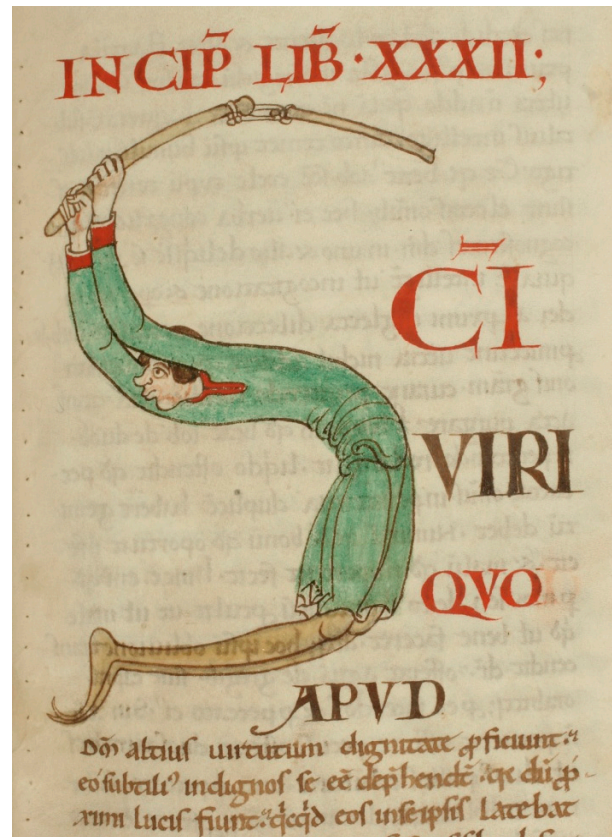 INCIP̄ LIB̄·XXXII;
CĪ
VIRI
QVO
APVD
dm̄ altius uirtutum dignitate ꝓficiunt:
eo subtili᾽ indignos se eē dep̄hendt̄
rimi lucis fiunt: eos inseipsis latebat